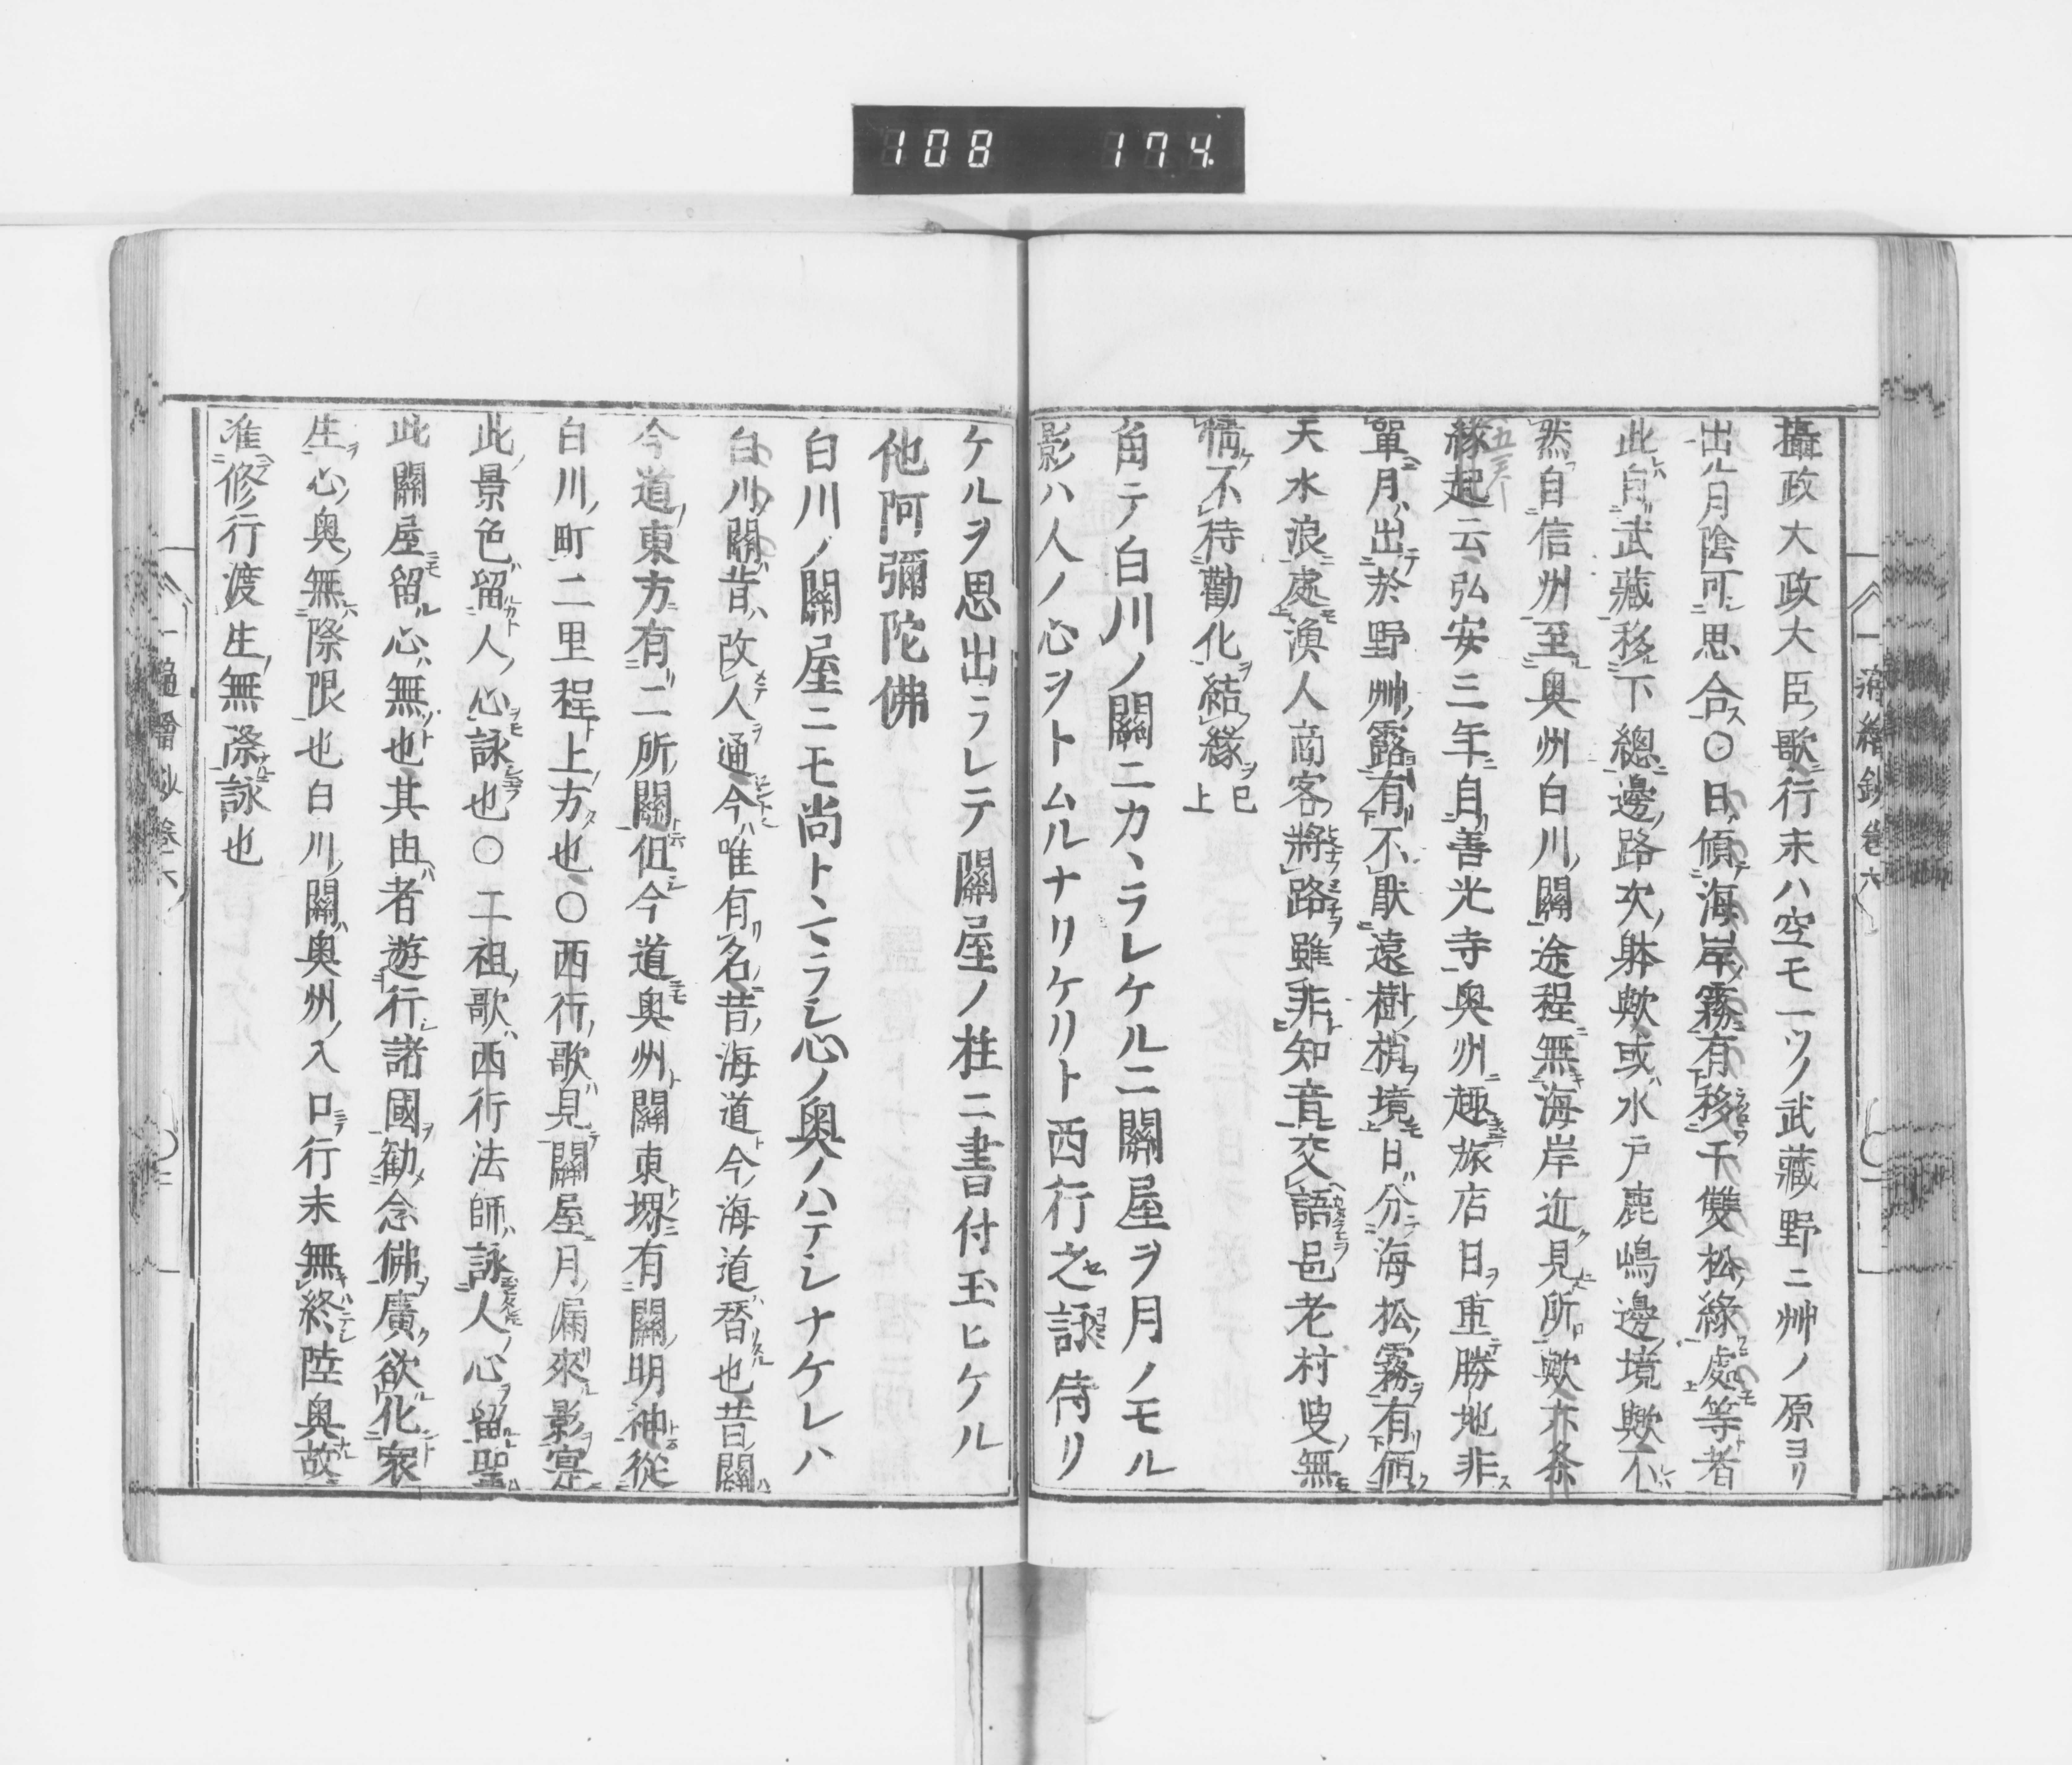 108 174
攝政大政大臣歌行末ハ空モ一ツノ武藏野ニ艸ノ原ヨリ
出ル月陰可思合○日傾海岸霧有移千雙松綠處等者
此自武藏移下總邊路次躰歟或水戸鹿嶋邊境歟不
然自信州至奥州白川關途程無海岸近見所歟亦条
緣起云弘安三年自善光寺奥州趣旅店日重勝地非
單月出於野艸露有不厭遠樹梢境日分海松霧有傾
天水浪處漁人商客將路雖非知音交語邑老村叟無
情不待勸化結緣已上
角テ白川ノ關ニカヽラレケルニ關屋ヲ月ノモル
影ハ人ノ心ヲトムルナリケリト西行之詠侍リ
ケルヲ思出ラレテ關屋ノ柱ニ書付玉ヒケル
他阿彌陀佛
白川ノ關屋ニモ尚トヽマラシ心ノ奥ノハテシナケレハ
白川關昔改人通今唯有名昔海道今海道替也昔關
今道東方有二所關但今道奥州關東堺有關明神從
白川町二里程上方也○西行歌見關屋月漏來影寔
此景色留人心詠也○二祖歌西行法師詠人心留聖
此關屋留心無也其由者遊行諸國勸念佛廣欲化衆
生心奥無際限也白川關奥州入口行末無終陸奥故
准修行渡生無際詠也
繪鈔卷六